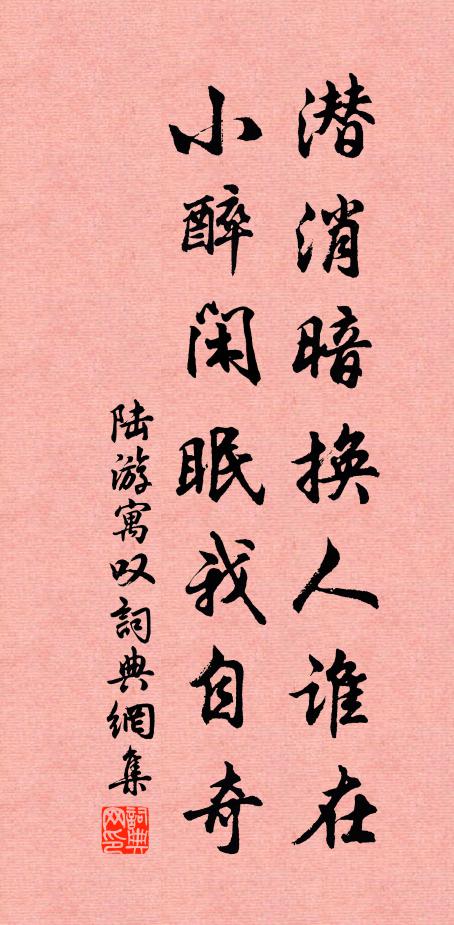 潜消暗换人谁在
小醉闲眠我自奇
陆游寓叹詞典網集
詞典网印